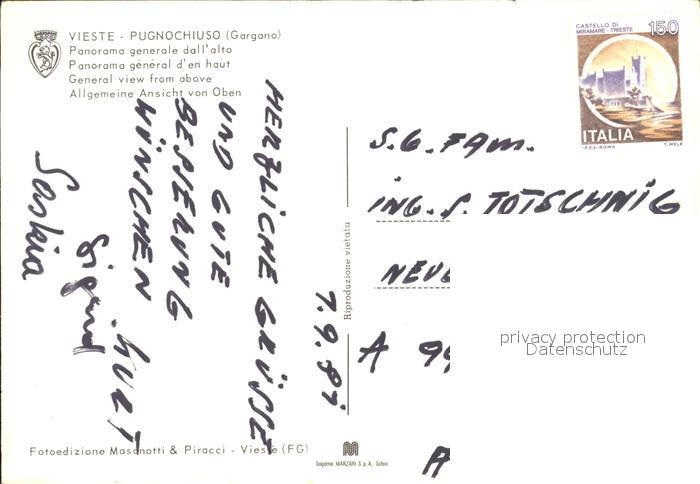 VIESTE - PUGNOCHIUSO (Gargano)
Panorama generale dall'alto
Panorama général d'en haut
General view from above
Allgemeine Ansicht von Oben
CASTELLO DI
MIRAMARE - TRIESTE
150
ITALIA
I.P.Z.S.-ROMA
T. MELE
7.9.81
HERZLICHE GRÜSSE
UND GUTE
BESSERUNG
WÜNSCHEN
KURT
Sigrid
Saskia
S.G. FAM.
ING. S. TOTSCHNIG
A
A
privacy protection
Datenschutz
Riproduzione vietata
Fotoedizione Masanotti & Piracci - Vieste (FG)
Sagena MARZARI S.p.A. Schio